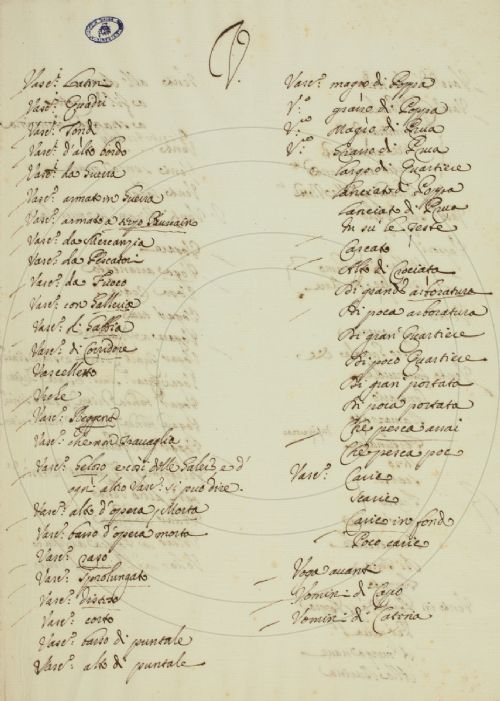 V.
Vasc.i Latini
Vasc.i Quadri
Vasc.i Tondi
Vasc.i d'alto bordo
Vasc.i da Guerra
Vasc.o armato in Guerra
Vasc.o armato a
Vasc.o da Mercanzia
Vasc.o da Pescatori
Vasc.o da Fuoco
Vasc.o con Galleria
Vasc.o di Gabbia
Vasc.o di Corridore
Vascelletto
Vele
Vasc.o Leggero
Vasc.o che non travaglia
Vasc.o veloso e così delle Galere, e d'
ogni altro Vasc.o si può dire.
Vasc.o alto d'opera Morta
Vasc.o basso d'opera morta
Vasc.o raso
Vasc.o
Vasc.o
Vasc.o corto
Vasc.o basso di puntale
Vasc.o alto di puntale
Vasc.o magro di Poppa
V.o grasso di Poppa
V.o Magro di Prua
V.o Grasso di Prua
largo di Quartiere
lanciato di Poppa
lanciato di Prua
In su le Teste
Carcato
Alto di Crociata
Di grand' arboratura
Di poca arboratura
Di gran Quartiere
Di poco Quartiere
Di gran portata
Di poca portata
Che pesca assai
Che pesca poc
Vasc.o Carico
Scarico
Carico in fond
Poco carico
Voga avanti
Vomini di Capo
Vomini di Catena